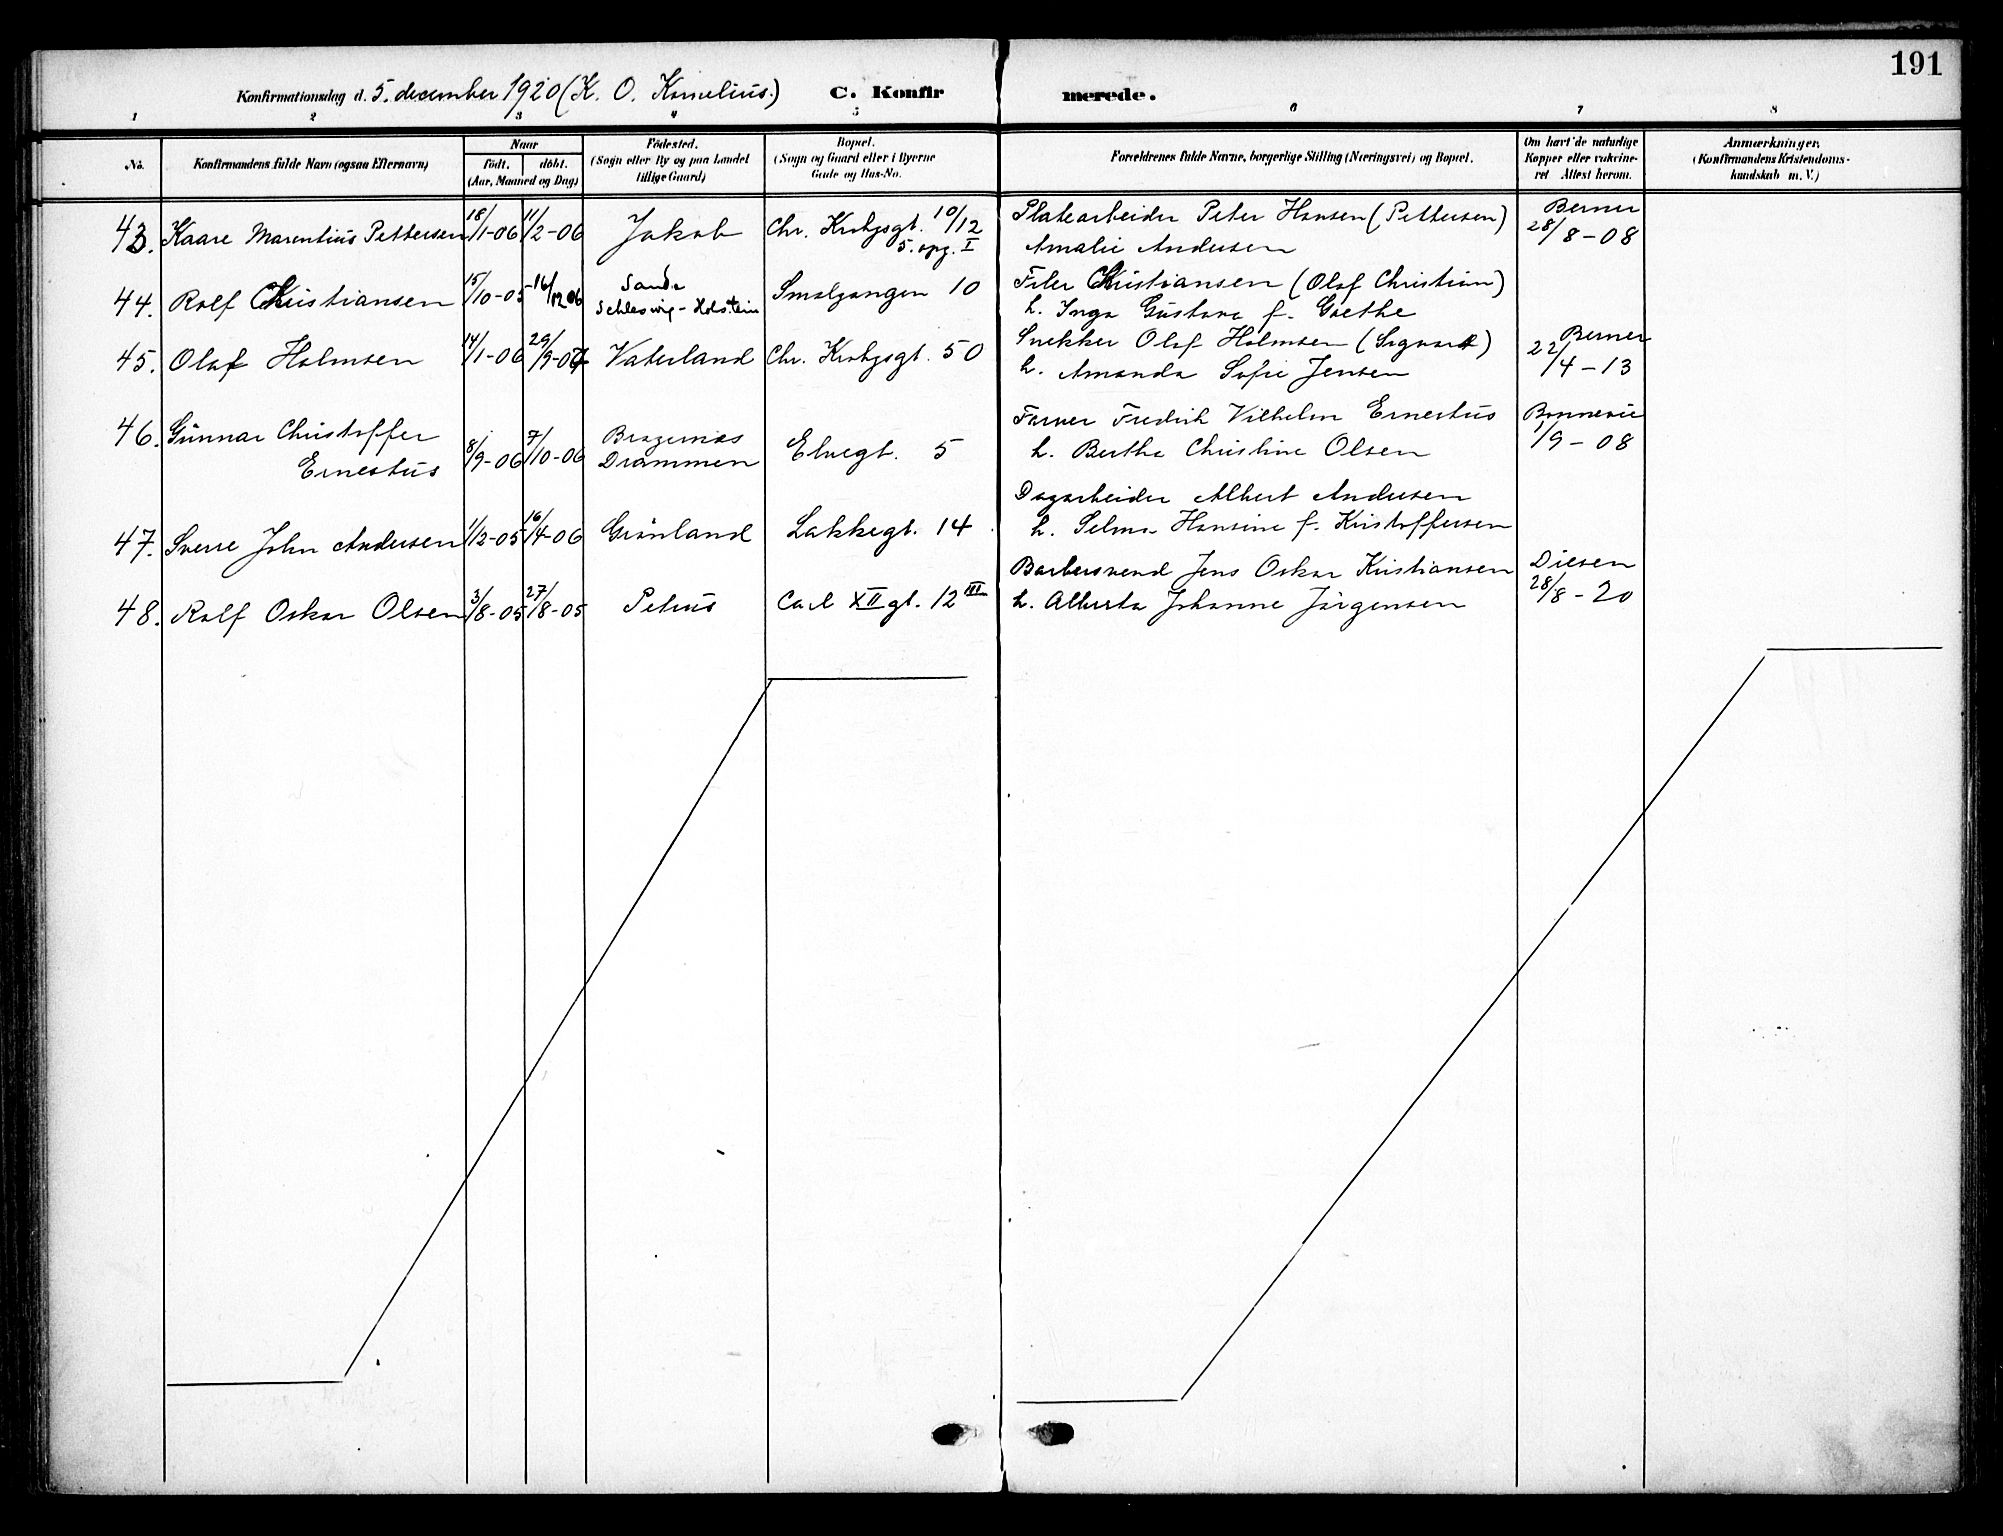 191
Konfirmationsdag d. 5. december 1920 (K. O. Kornelius.) C. Konfirmerede.
1 2 3 4 5 6 7 8
No. Konfirmandens fulde Navn (ogsaa Efternavn) Naar født. døbt. (Aar, Maaned og Dag) Fødested. (Sogn eller By og paa Landet tillige Gaard) Bopæl. (Sogn og Gaard eller i Byerne Gade og Hus-No. Forældrenes fulde Navne, borgerlige Stilling (Næringsvei) og Bopæl. Om havt de naturlige Kopper eller vakcineret Attest herom. Anmærkninger, (Konfirmandens Kristendomskundskab m. V.)
43. Kaare Marentius Pettersen 18/1-06 11/2-06 Jakob Chr. Krohgsgt. 10/12 Platearbeider Peter Hansen (Pettersen) Berner
5. opg. I Amalie Andersen 28/8-08
44. Rolf Christiansen 15/10-05 16/12 06 Sande Smalgangen 10 Filer Christiansen (Olaf Christian)
Schleswig-Holstein h. Inga Gustava f. Goethe
45. Olaf Holmsen 14/1-06 29/9-07 Vaterland Chr. Krohgsgt. 50 Snekker Olaf Holmsen (Sigvard) Berner
h. Amanda Sofie Jensen 22/4-13
46. Gunnar Christoffer Bragernæs Farver Fredrik Vilhelm Ernestus Bonnevie
Ernestus 8/9-06 7/10-06 Drammen Elvegt. 5 h. Bertha Christine Olsen 1/9-08
Dagarbeider Albert Andersen
47. Sverre John Andersen 1/12-05 16/4-06 Grønland Lakkegt. 14 h. Selma Hansine f. Kristoffersen
Barbersvend Jens Oskar Kristiansen Diesen
48. Rolf Oskar Olsen 3/8-05 27/8-05 Petrus Carl XII gt. 12 III h. Alberta Johanne Jørgensen 28/8-20